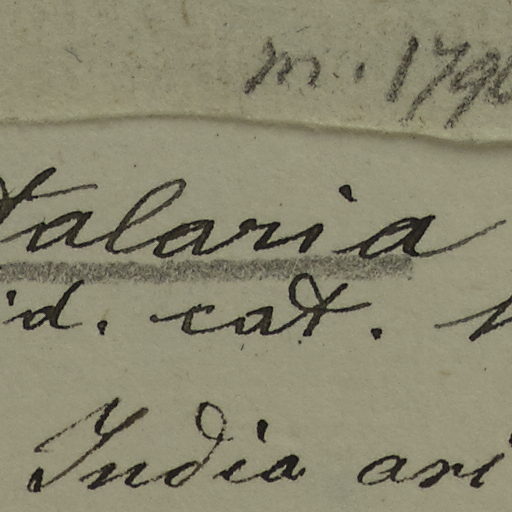 m. 179
talaria
id. cat.
India ori